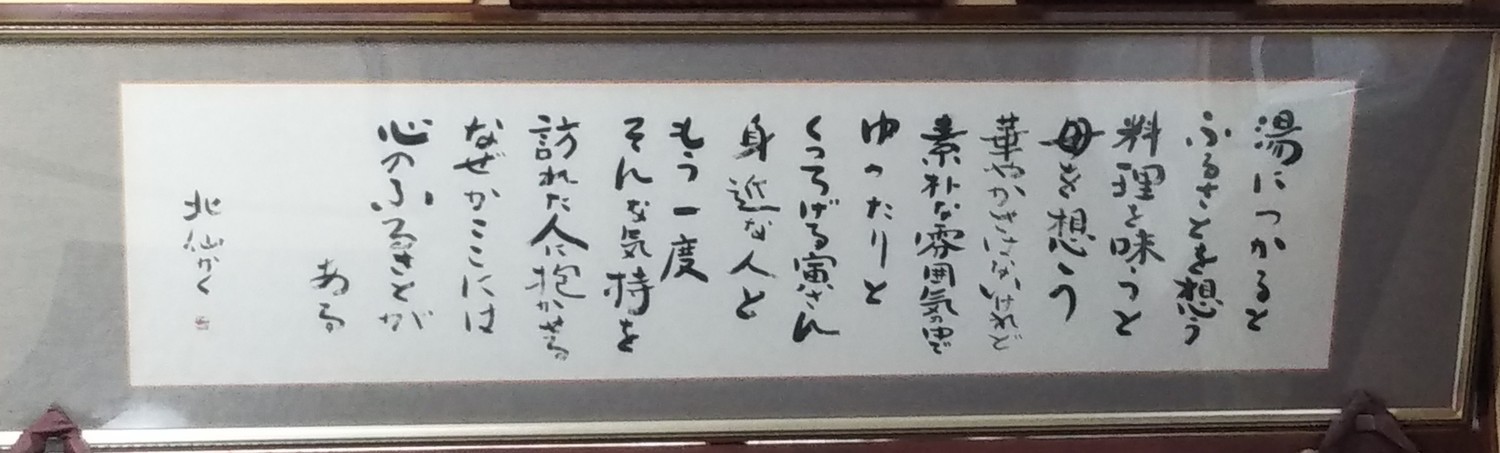 湯につかると
ふるさとを想う
料理を味うと
母を想う
華やかさはないけれど
素朴な雰囲気の中で
ゆったりと
くつろげる寅さん
身近な人と
もう一度
そんな気持を
訪れた人に抱かせる
なぜかここには
心のふるさとが
ある
北仙かく